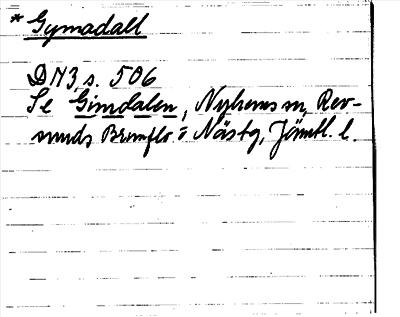 * Gymadall
DN3, s. 506
Se Gimdalen, Nyhems sn, Rev-
sunds Brunflo o Näs tg, Jämtl. l.